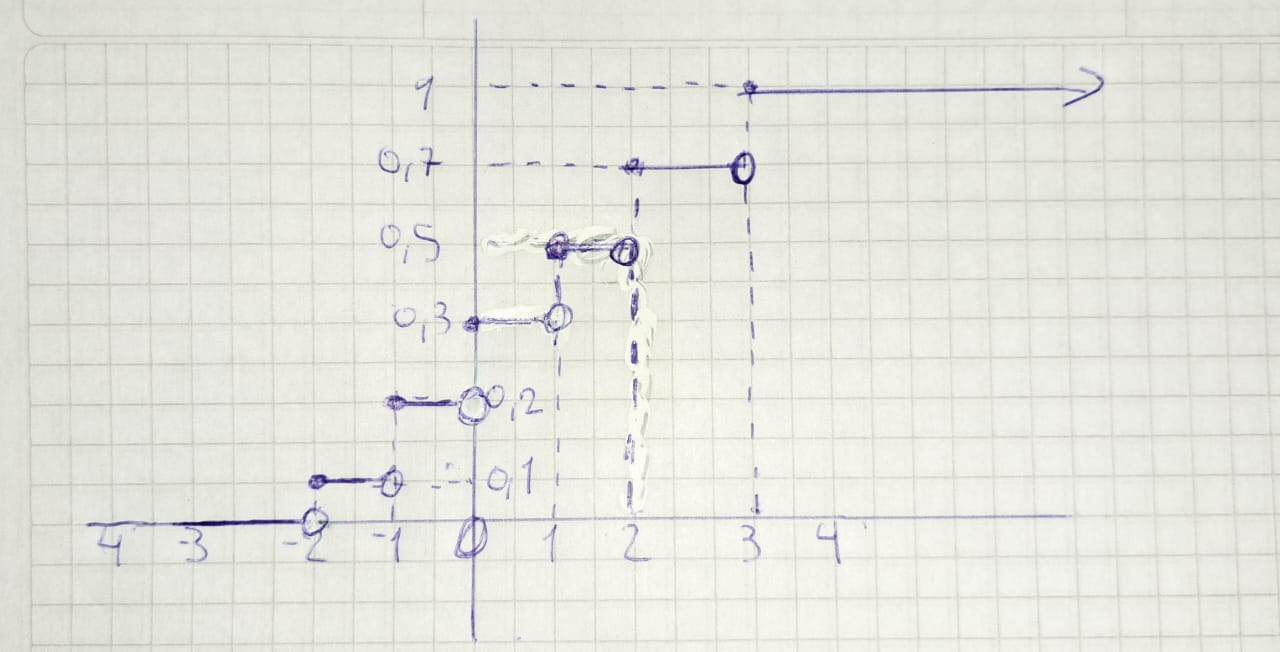 1
0,7
0,5
0,3
0,2
0,1
4 -3 -2 -1 0 1 2 3 4